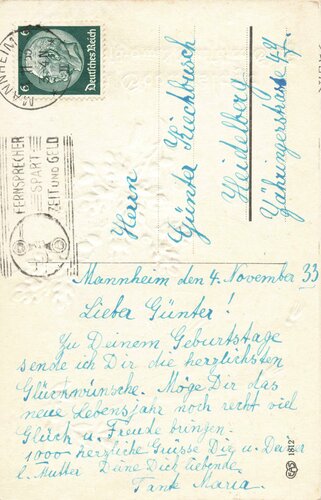 MANNHEIM
Deutsches Reich
6 6
FERNSPRECHER
SPART
ZEIT UND GELD
Herrn
Günter
Heidelberg
Zähringerstrasse
Mannheim den 4. November 33
Lieber Günter!
Zu Deinem Geburtstage
sende ich Dir die herzlichsten
Glückwünsche. Möge Dir das
neue Lebensjahr noch recht viel
Glück u. Freude bringen.
1000 herzliche Grüsse Dir u. Deiner
l. Mutter Deine Dich liebende
Tante Maria
1812